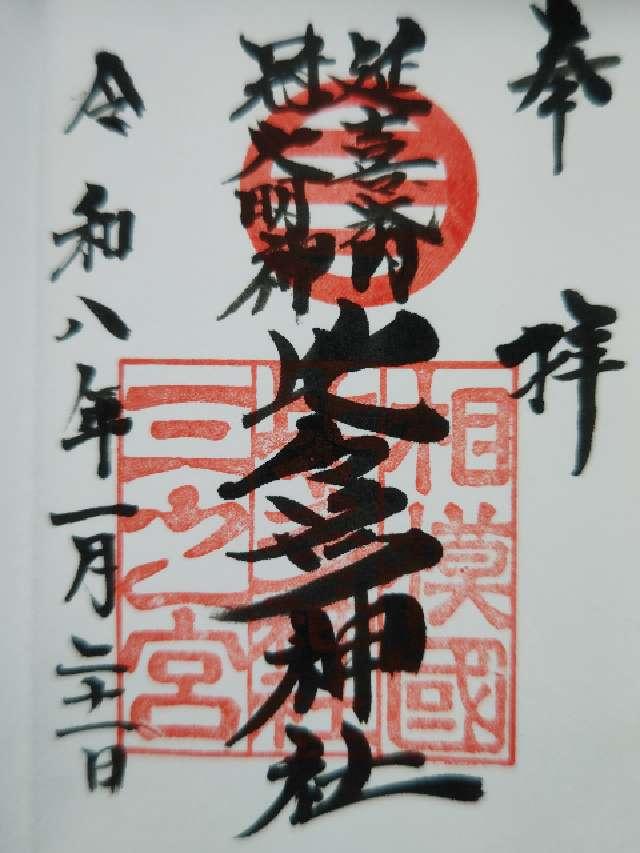 奉拝
延喜式内
冠大明神
比々多神社
相模國
比々多神社
三之宮
令和八年一月二十一日